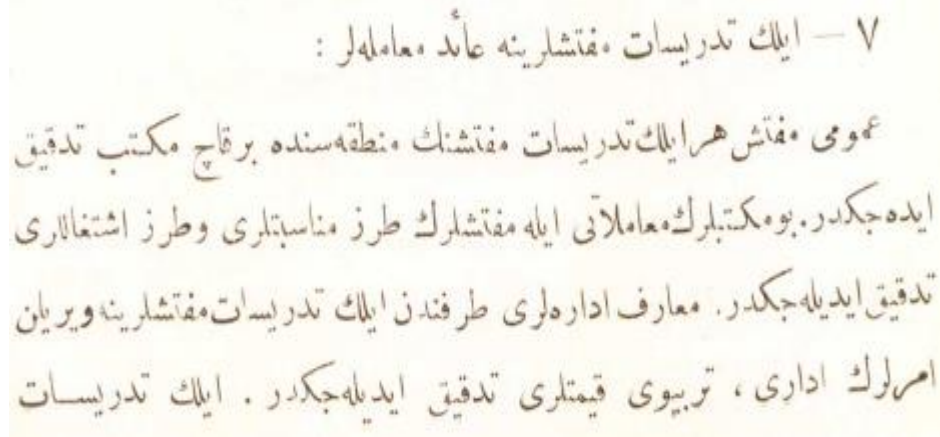 ٧ — ایلك تدریسات مفتشلرینه عائد معامله‌لر :
عمومی مفتش هر ایلك تدریسات مفتشنك منطقه‌سنده بر قاچ مكتب تدقیق
ایده‌جكدر. بو مكتبلرك معاملاتی ایله مفتشلرك طرز مناسبتلری و طرز اشتغاللری
تدقیق ایدیله‌جكدر. معارف اداره‌لری طرفندن ایلك تدریسات مفتشلرینه ویریلن
امرلرك اداری ، تربیوی قیمتلری تدقیق ایدیله‌جكدر . ایلك تدریسات